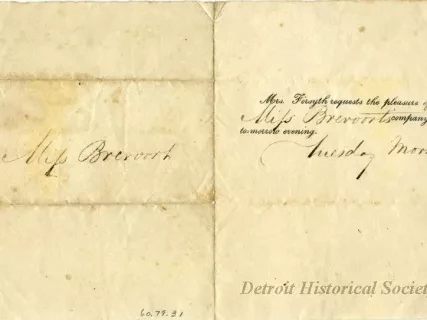 Miss Brevoort
Mrs. Forsyth requests the pleasure of
Miss Brevoorts company
to-morrow evening.
Tuesday Morn
60.79.31
Detroit Historical Society